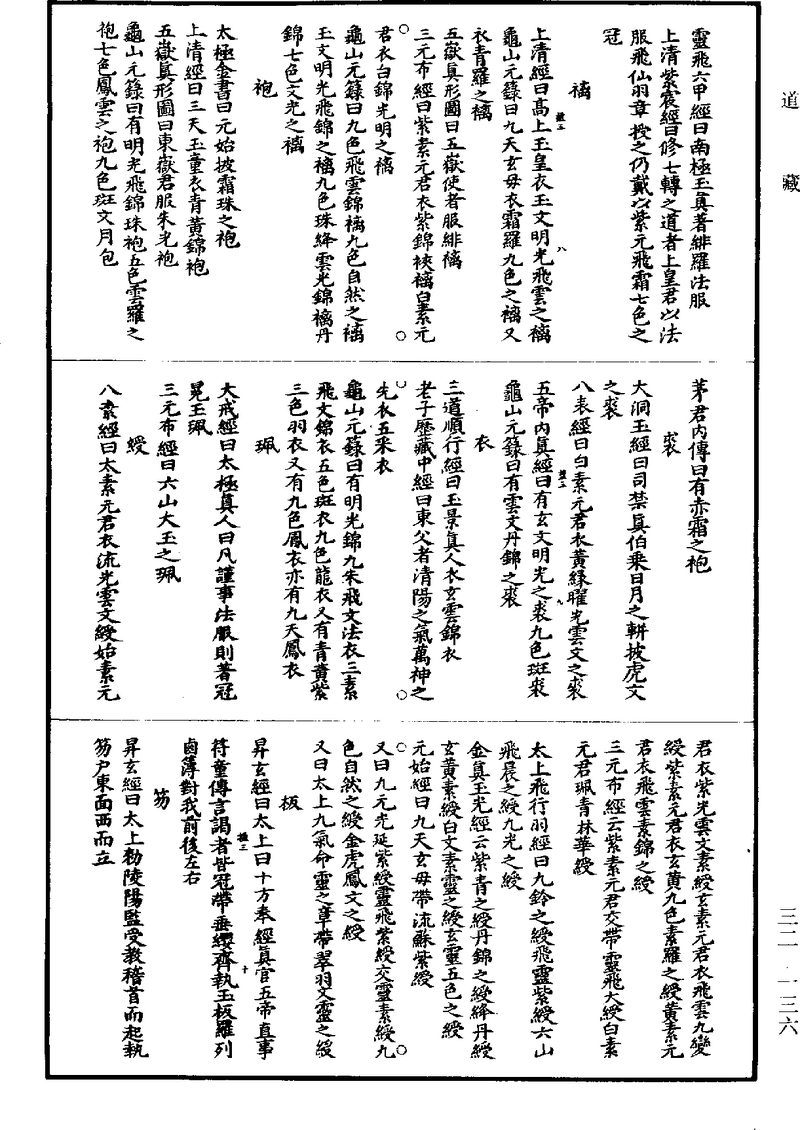 道藏
靈飛六甲經曰南極玉真著緋羅法服
上清紫宸經曰修七轉之道者上皇君以法
服飛仙羽章授之仍戴以紫元飛霜七色之
冠
褵
上清經曰髙上玉皇衣玉文明光飛雲之褵
龜山元籙曰九天玄母衣霜羅九色之褵又
衣青羅之褵
五嶽真形圖曰五嶽使者服緋褵
三元布經曰紫素元君衣紫錦裌褵白素元
君衣白錦光明之褵
龜山元籙曰九色飛雲錦褵九色自然之褵
玉文明光飛錦之褵九色珠絳雲光錦褵丹
錦七色文光之褵
袍
太極金書曰元始披霜珠之袍
上清經曰三天玉童衣青黃錦袍
五嶽真形圖曰東嶽君服朱光袍
龜山元籙曰有明光飛錦珠袍五色雲羅之
袍七色鳳雲之袍九色斑文月包
茅君內傳曰有赤霜之袍
裘
大洞玉經曰司禁真伯乘日月之軿披虎文
之裘
八表經曰白素元君衣黃綠曜光雲文之裘
五帝內真經曰有玄文明光之裘九色斑裘
龜山元籙曰有雲文丹錦之裘
衣
三道順行經曰玉景真人衣玄雲錦衣
老子歷藏中經曰東父者清陽之氣萬神之
先衣五采衣
龜山元籙曰有明光錦九朱飛文法衣三素
飛文錦衣五色斑衣九色龍衣又有青黃紫
三色羽衣又有九色鳳衣亦有九天鳳衣
珮
大戒經曰太極真人曰凡謹事法服則著冠
晃玉珮
三元布經曰六山大玉之珮
綬
八素經曰太素元君衣流光雲文綬始素元
君衣紫光雲文素綬玄素元君衣飛雲九變
綬紫素元君衣玄黃九色素羅之綬黃素元
君衣飛雲素錦之綬
三元布經云紫素元君交帶靈飛大綬白素
元君珮青林華綬
太上飛行羽經曰九鈴之綬飛靈紫綬六山
飛晨之綬九光之綬
金真玉光經云紫青之綬丹錦之綬絳丹綬
玄黃素綬白文素靈之綬玄靈五色之綬
元始經曰九天玄母帶流蘇紫綬
又曰九元光延紫綬靈飛紫綬交靈素綬九
色自然之綬金虎鳳文之綬
又曰太上九氣命靈之章帶翠羽文靈之綬
板
昇玄經曰太上曰十方奉經真官五帝直事
符童傳言謁者皆冠帶垂纓齊執玉板羅列
鹵簿對我前後左右
笏
昇玄經曰太上勑陵陽監受教稽首而起執
笏戶東面西而立
三二 一三六